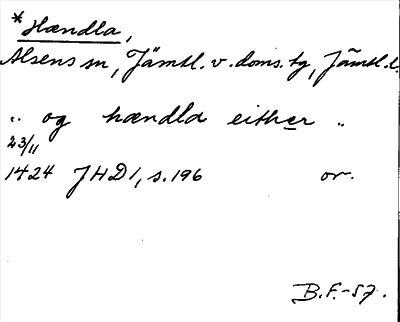 *Hændla,
Alsens sn, Jämtl. v. doms. tg, Jämtl. l.
.. og hændla either ..
23/11
1424 JHD1, s. 196 or.
B.F.-57.